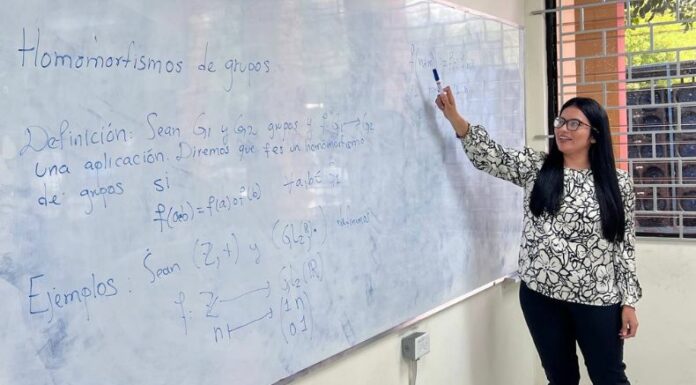 Homomorfismos de grupos.
Definición: Sean G1 y G2 grupos y f: G1 → G2
una aplicación: Diremos que f es un homomorfismo
de grupos si
f(a·b) = f(a) o f(b) ∀a,b ∈
Ejemplos: Sean (Z, +) y (GL2(R), ·)
f: Z → GL2(R)
n ↦ (1 n
0 1)